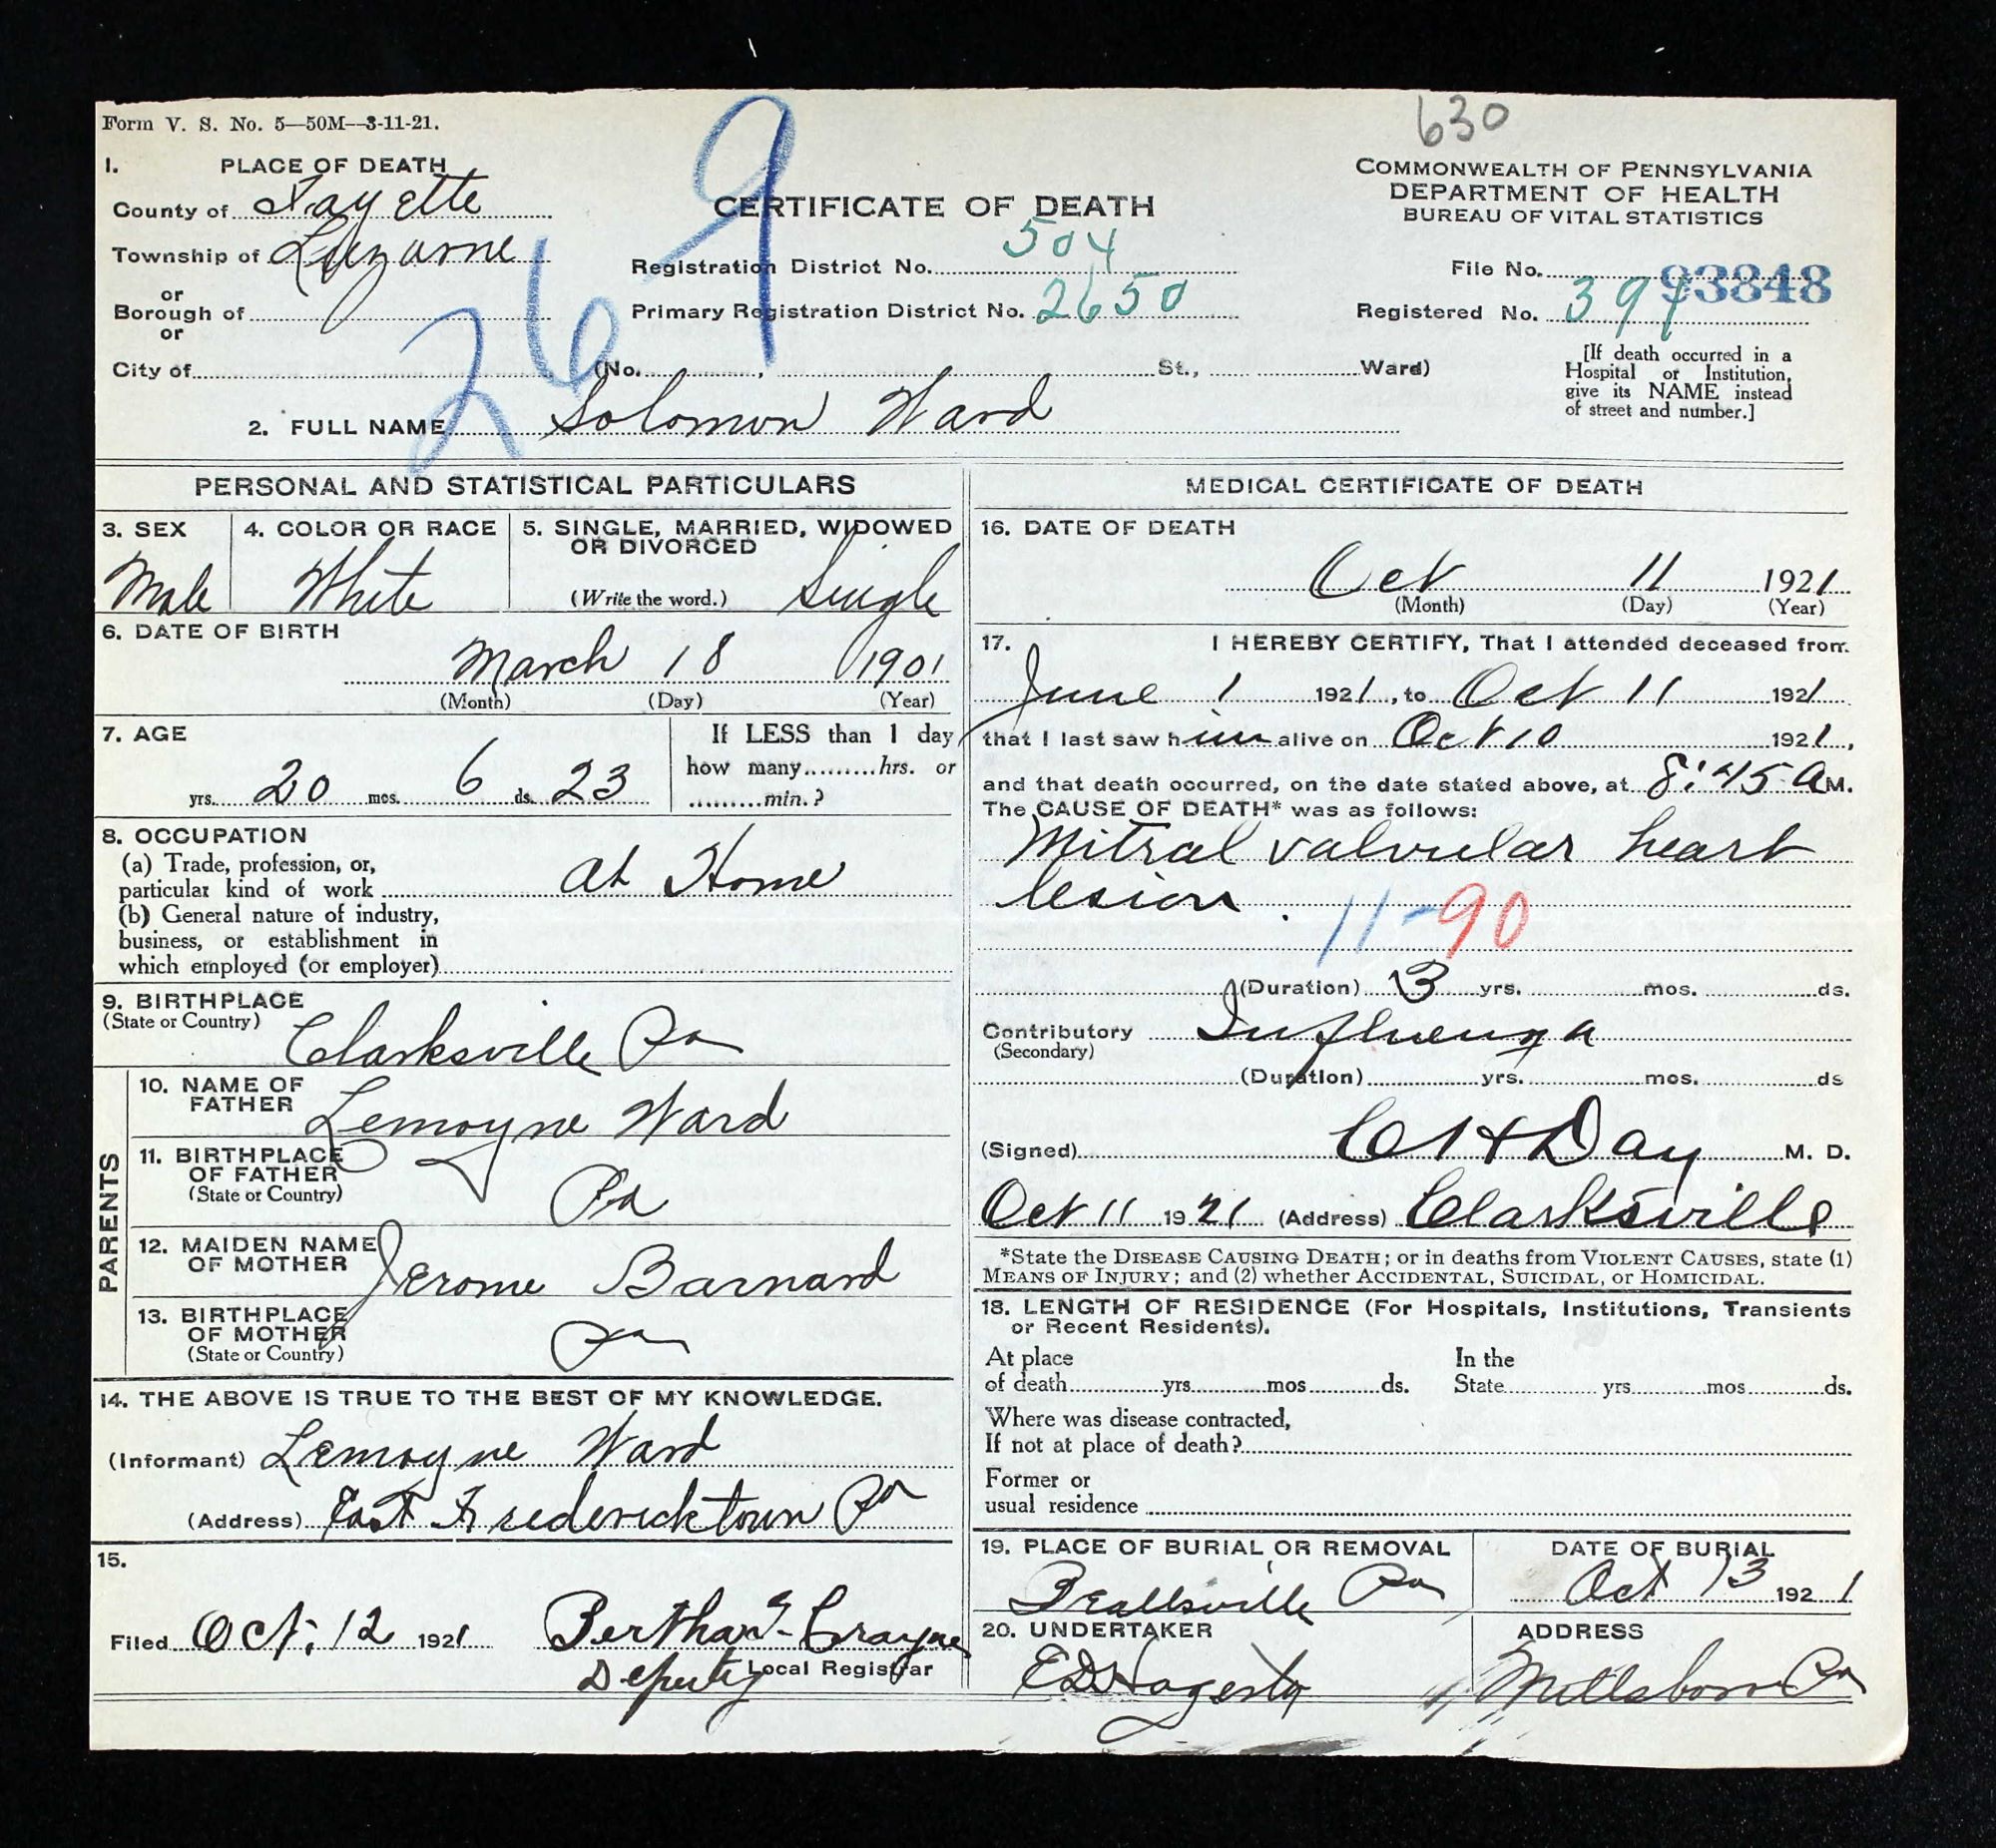 630
Form V. S. No. 5—50M—3-11-21.
1. PLACE OF DEATH
County of Fayette
Township of Luzarne
or
Borough of
or
City of
(No. , St., Ward)
CERTIFICATE OF DEATH
Registration District No. 504
Primary Registration District No. 2650
COMMONWEALTH OF PENNSYLVANIA
DEPARTMENT OF HEALTH
BUREAU OF VITAL STATISTICS
File No. 93848
Registered No. 391
[If death occurred in a
Hospital or Institution,
give its NAME instead
of street and number.]
269
2. FULL NAME Solomon Ward
PERSONAL AND STATISTICAL PARTICULARS
3. SEX
Male
4. COLOR OR RACE
White
5. SINGLE, MARRIED, WIDOWED
OR DIVORCED
(Write the word.) Single
6. DATE OF BIRTH
March 18 1901
(Month) (Day) (Year)
7. AGE
yrs. 20 mos. 6 ds. 23
If LESS than 1 day
how many.........hrs. or
.........min.?
8. OCCUPATION
(a) Trade, profession, or,
particular kind of work at Home
(b) General nature of industry,
business, or establishment in
which employed (or employer)
9. BIRTHPLACE
(State or Country) Clarksville Pa
PARENTS
10. NAME OF
FATHER Lemoyne Ward
11. BIRTHPLACE
OF FATHER
(State or Country) Pa
12. MAIDEN NAME
OF MOTHER Jerome Barnard
13. BIRTHPLACE
OF MOTHER
(State or Country) Pa
14. THE ABOVE IS TRUE TO THE BEST OF MY KNOWLEDGE.
(Informant) Lemoyne Ward
(Address) East Fredericktown Pa
15.
Filed Oct. 12 1921 Bertha E Crayne
Deputy Local Registrar
MEDICAL CERTIFICATE OF DEATH
16. DATE OF DEATH
Oct 11 1921
(Month) (Day) (Year)
17. I HEREBY CERTIFY, That I attended deceased from
June 1 1921, to Oct 11 1921
that I last saw him alive on Oct 10 1921,
and that death occurred, on the date stated above, at 8:45 A M.
The CAUSE OF DEATH* was as follows:
Mitral valvular heart
lesion.
11-90
(Duration) 3 yrs. mos. ds.
Contributory Influenza
(Secondary)
(Duration) yrs. mos. ds
(Signed) C H Day M. D.
Oct 11 1921 (Address) Clarksville
*State the DISEASE CAUSING DEATH; or in deaths from VIOLENT CAUSES, state (1)
MEANS OF INJURY; and (2) whether ACCIDENTAL, SUICIDAL, or HOMICIDAL.
18. LENGTH OF RESIDENCE (For Hospitals, Institutions, Transients
or Recent Residents).
At place In the
of death yrs. mos ds. State yrs. mos ds.
Where was disease contracted,
If not at place of death?
Former or
usual residence
19. PLACE OF BURIAL OR REMOVAL
Beallsville Pa
DATE OF BURIAL
Oct 13 1921
20. UNDERTAKER
E D Hagerty
ADDRESS
Millsboro Pa